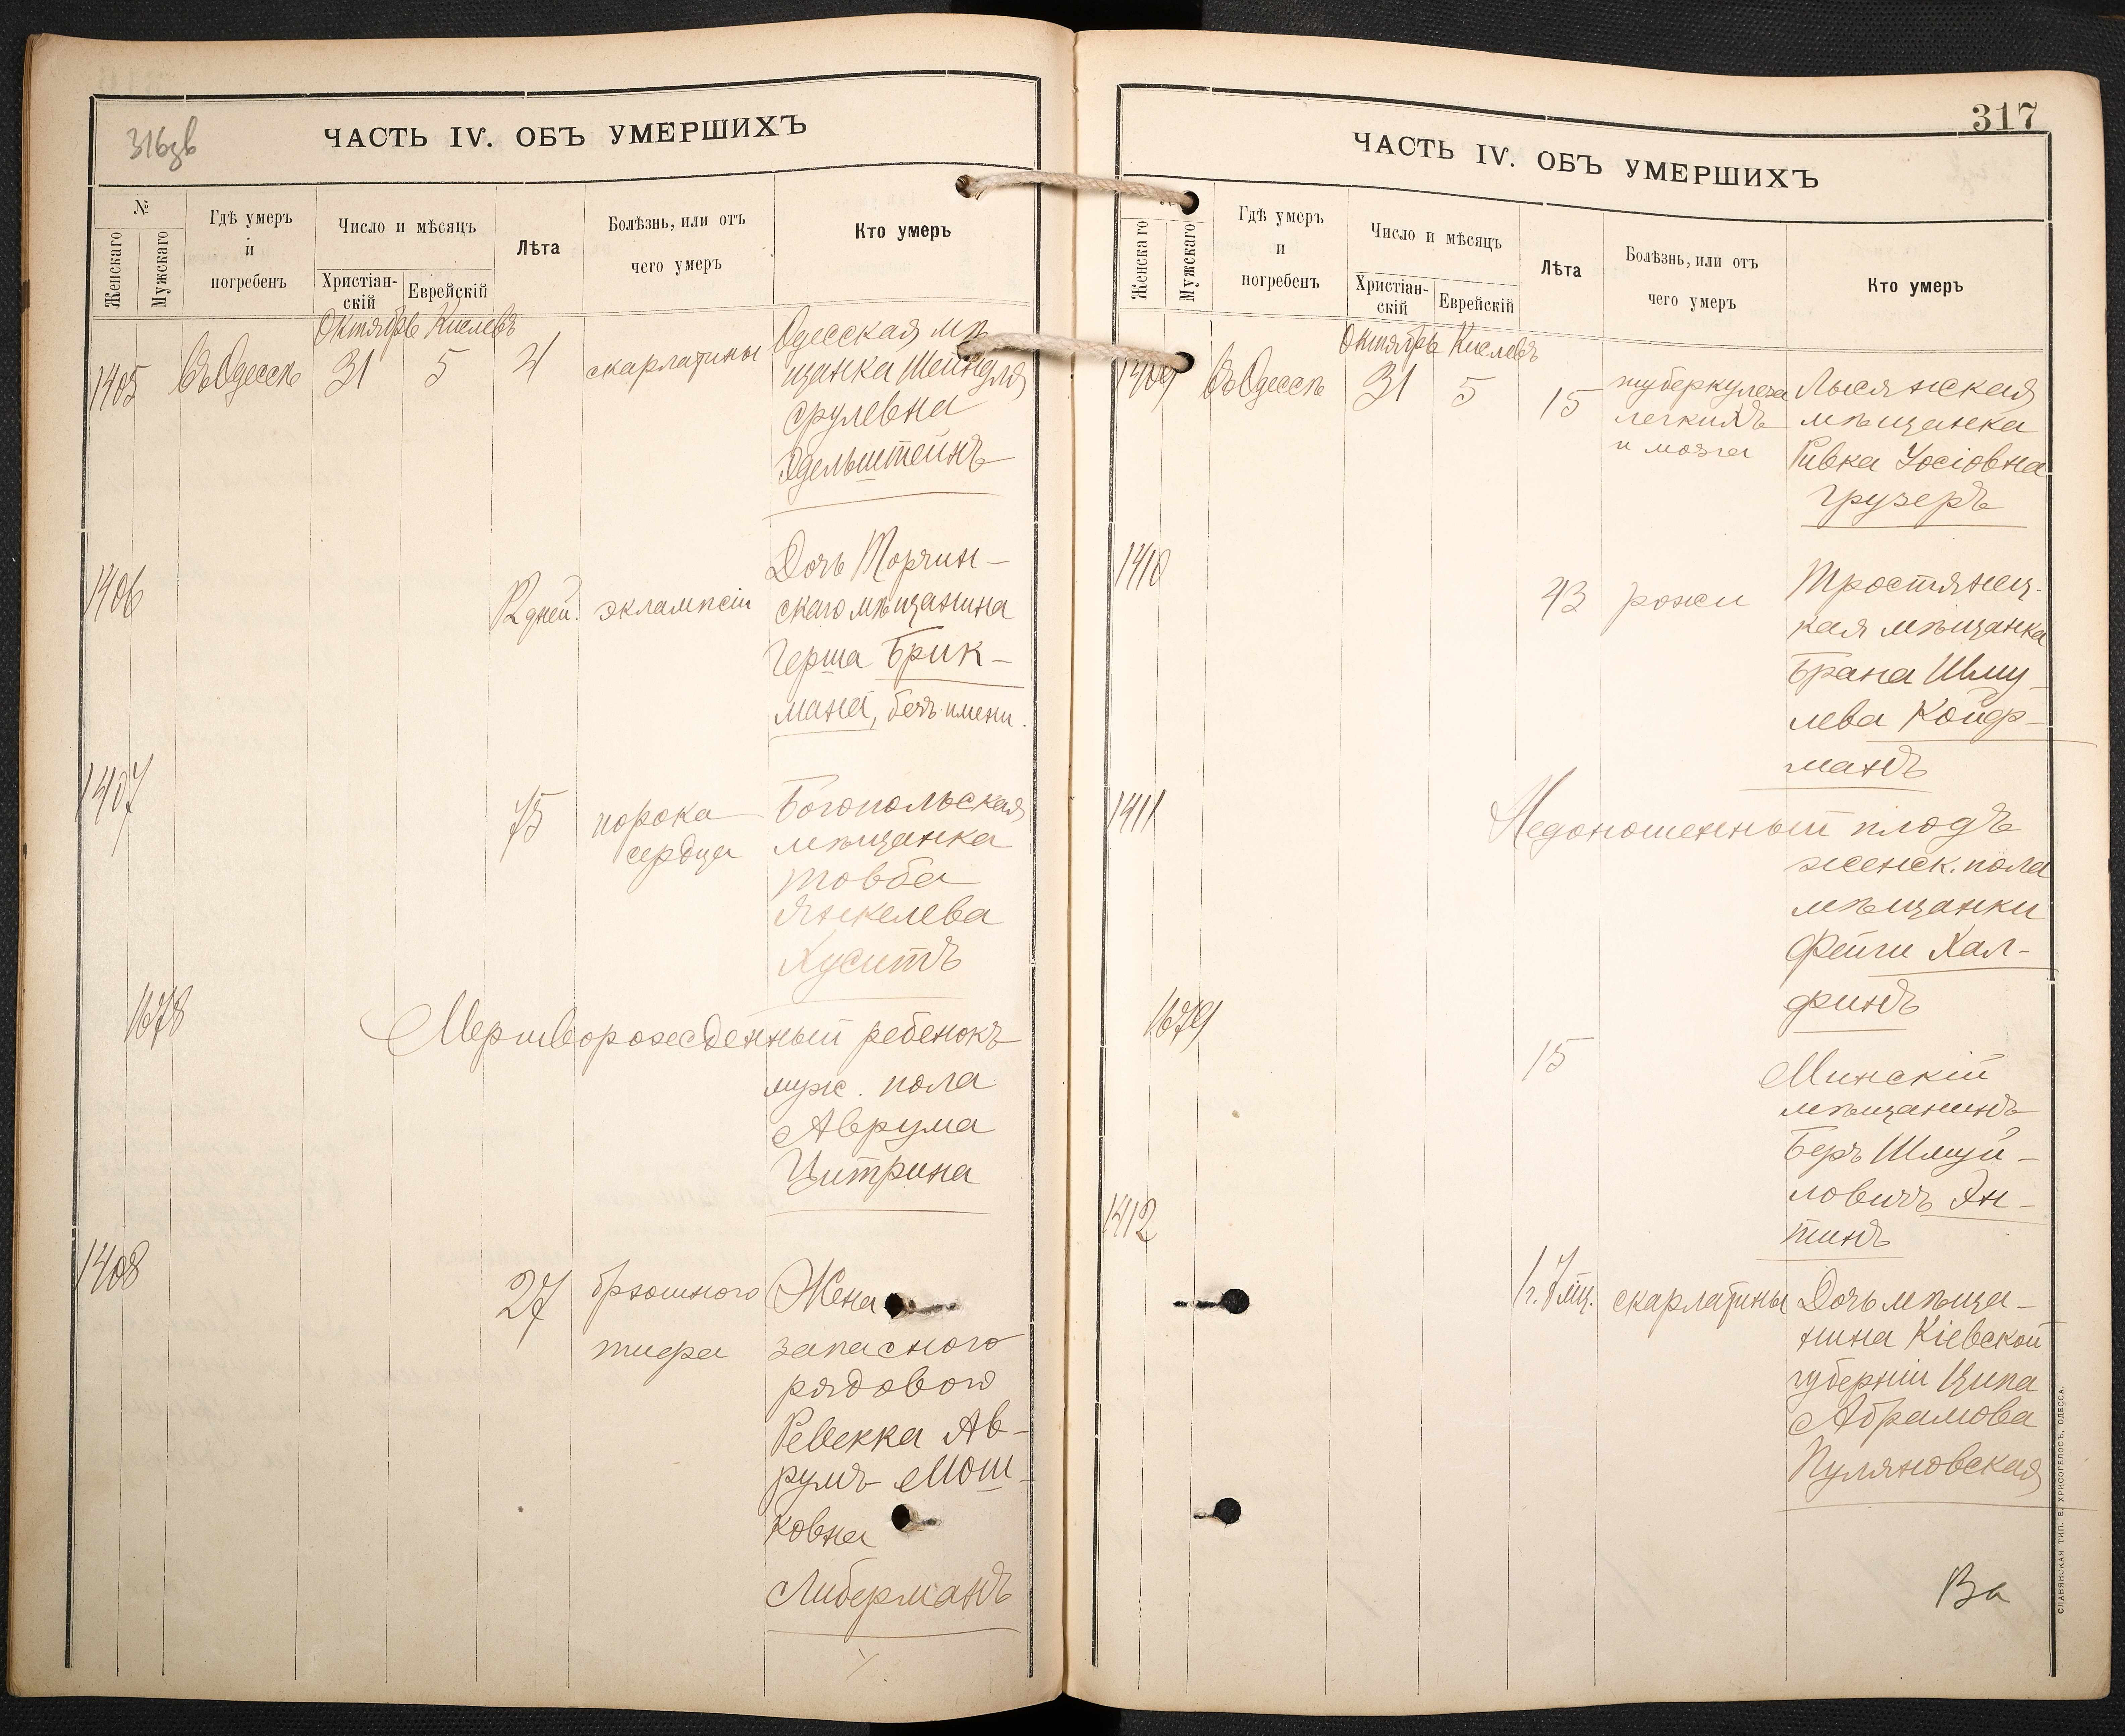 316зв
ЧАСТЬ IV. ОБЪ УМЕРШИХЪ
№
Женскаго
Мужскаго
Гдѣ умеръ
и
погребенъ
Число и мѣсяцъ
Христіан-
скій
Еврейскій
Лѣта
Болѣзнь, или отъ
чего умеръ
Кто умеръ
Октябрь Кислевъ
1405 Въ Одессѣ 31 5 4 скарлатины Одесская мѣ
щанка Шейндля
Срулевна
Эдельштейнъ
1406 12 дней. эклампсіи Дочь Торчин-
скаго мѣщанина
Герша Брик-
мана, безъ имени.
1407 75 порока Богопольская
сердца мѣщанка
Товба
Янкелева
Хуситъ
1678 Мертворожденный ребенокъ
муж. пола
Аврума
Цитрина
1408 27 брюшного Жена
тифа запасного
рядового
Ревекка Ав-
румъ-Мош-
ковна
Либерманъ
317
ЧАСТЬ IV. ОБЪ УМЕРШИХЪ
Женскаго
Мужскаго
Гдѣ умеръ
и
погребенъ
Число и мѣсяцъ
Христіан-
скій
Еврейскій
Лѣта
Болѣзнь, или отъ
чего умеръ
Кто умеръ
Октябрь Кислевъ
1409 Въ Одессѣ 31 5 15 туберкулеза Лысянская
легкихъ мѣщанка
и мозга Ривка Іосіовна
Грузеръ
1410 43 рожи Тростянец-
кая мѣщанка
Брана Шму-
лева Койф-
манъ
1411 Недоношенный плодъ
женск. пола
мѣщанки
Фейги Хал-
финъ
1679 15 Минскій
мѣщанинъ
Беръ Шмуй-
ловичъ Эн-
тинъ
1412
1 г. 7 мц. скарлатины Дочь мѣща-
нина Кіевской
губерніи Ципа
Абрамова
Пуляновская
За
СЛАВЯНСКАЯ ТИП. Е. ХРИСОГЕЛОСЪ, ОДЕССА.